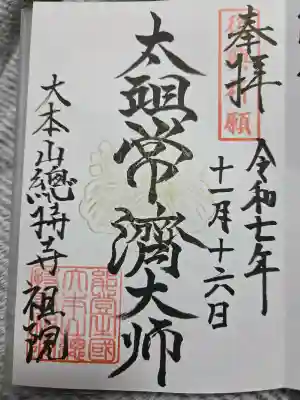 奉拝
令和七年
十一月十六日
太祖常濟大师
大本山總持寺祖院